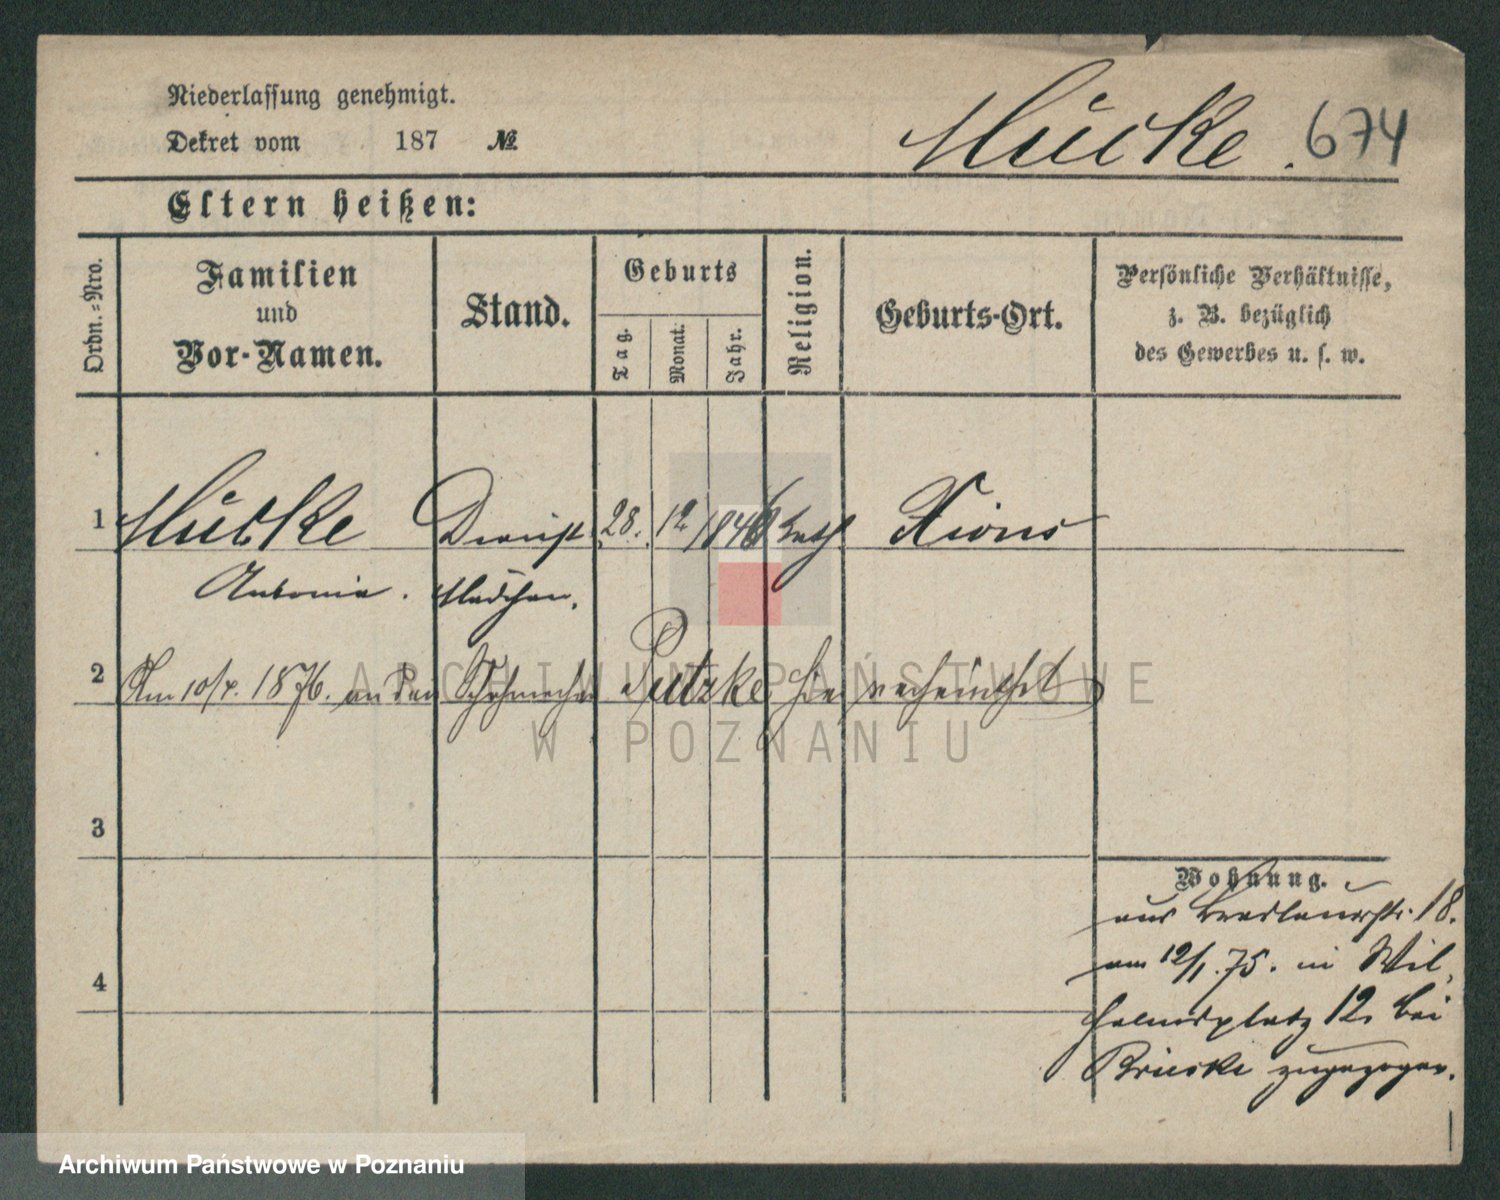 Niederlassung genehmigt.
Dekret vom 187 №
Mücke. 674
Eltern heißen:
Ordn.-Nro.
Familien
und
Vor-Namen.
Stand.
Geburts
Tag.
Monat.
Jahr.
Religion.
Geburts-Ort.
Persönliche Verhältnisse,
z. B. bezüglich
des Gewerbes u. s. w.
1 Mücke Dienst 28. 12 1846 kath Xions
Antonia. Mädchen.
2 Am 10/4. 1876. an den Schuhmacher Putzke hier verheirathet
3
4
Wohnung.
aus Breslauerstr. 18.
am 12/1. 75. in Wil-
helmsplatz 12. bei
zugezogen.
ARCHIWUM PAŃSTWOWE
W POZNANIU
Archiwum Państwowe w Poznaniu